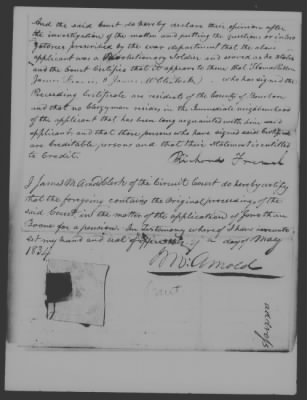 And the said Court do hereby declare their opinion after
the investigation of the matter and putting the questions or interro
gatories prescribed by the war department that the above
applicant was a Revolutionary Soldier and served as he states
and the Court Certifies that it appears to them that
James who has signed the
Preceding Certificate are residents of the County of
and that no Clergyman resides in the immediate neighborhood
of the applicant that has been long acquainted with him said
applicant and that those persons who have signed said Certificate
are creditable persons and that their statement is entitled
to Credit.
Richard French
I James M. Clerk of the Circuit Court do hereby certify
that the foregoing contains the original proceedings of the
said Court in the matter of the application of Jonathan
Boone for a pension. In Testimony whereof I have hereunto
set my hand and seal of office this day of May
1834
Arnold